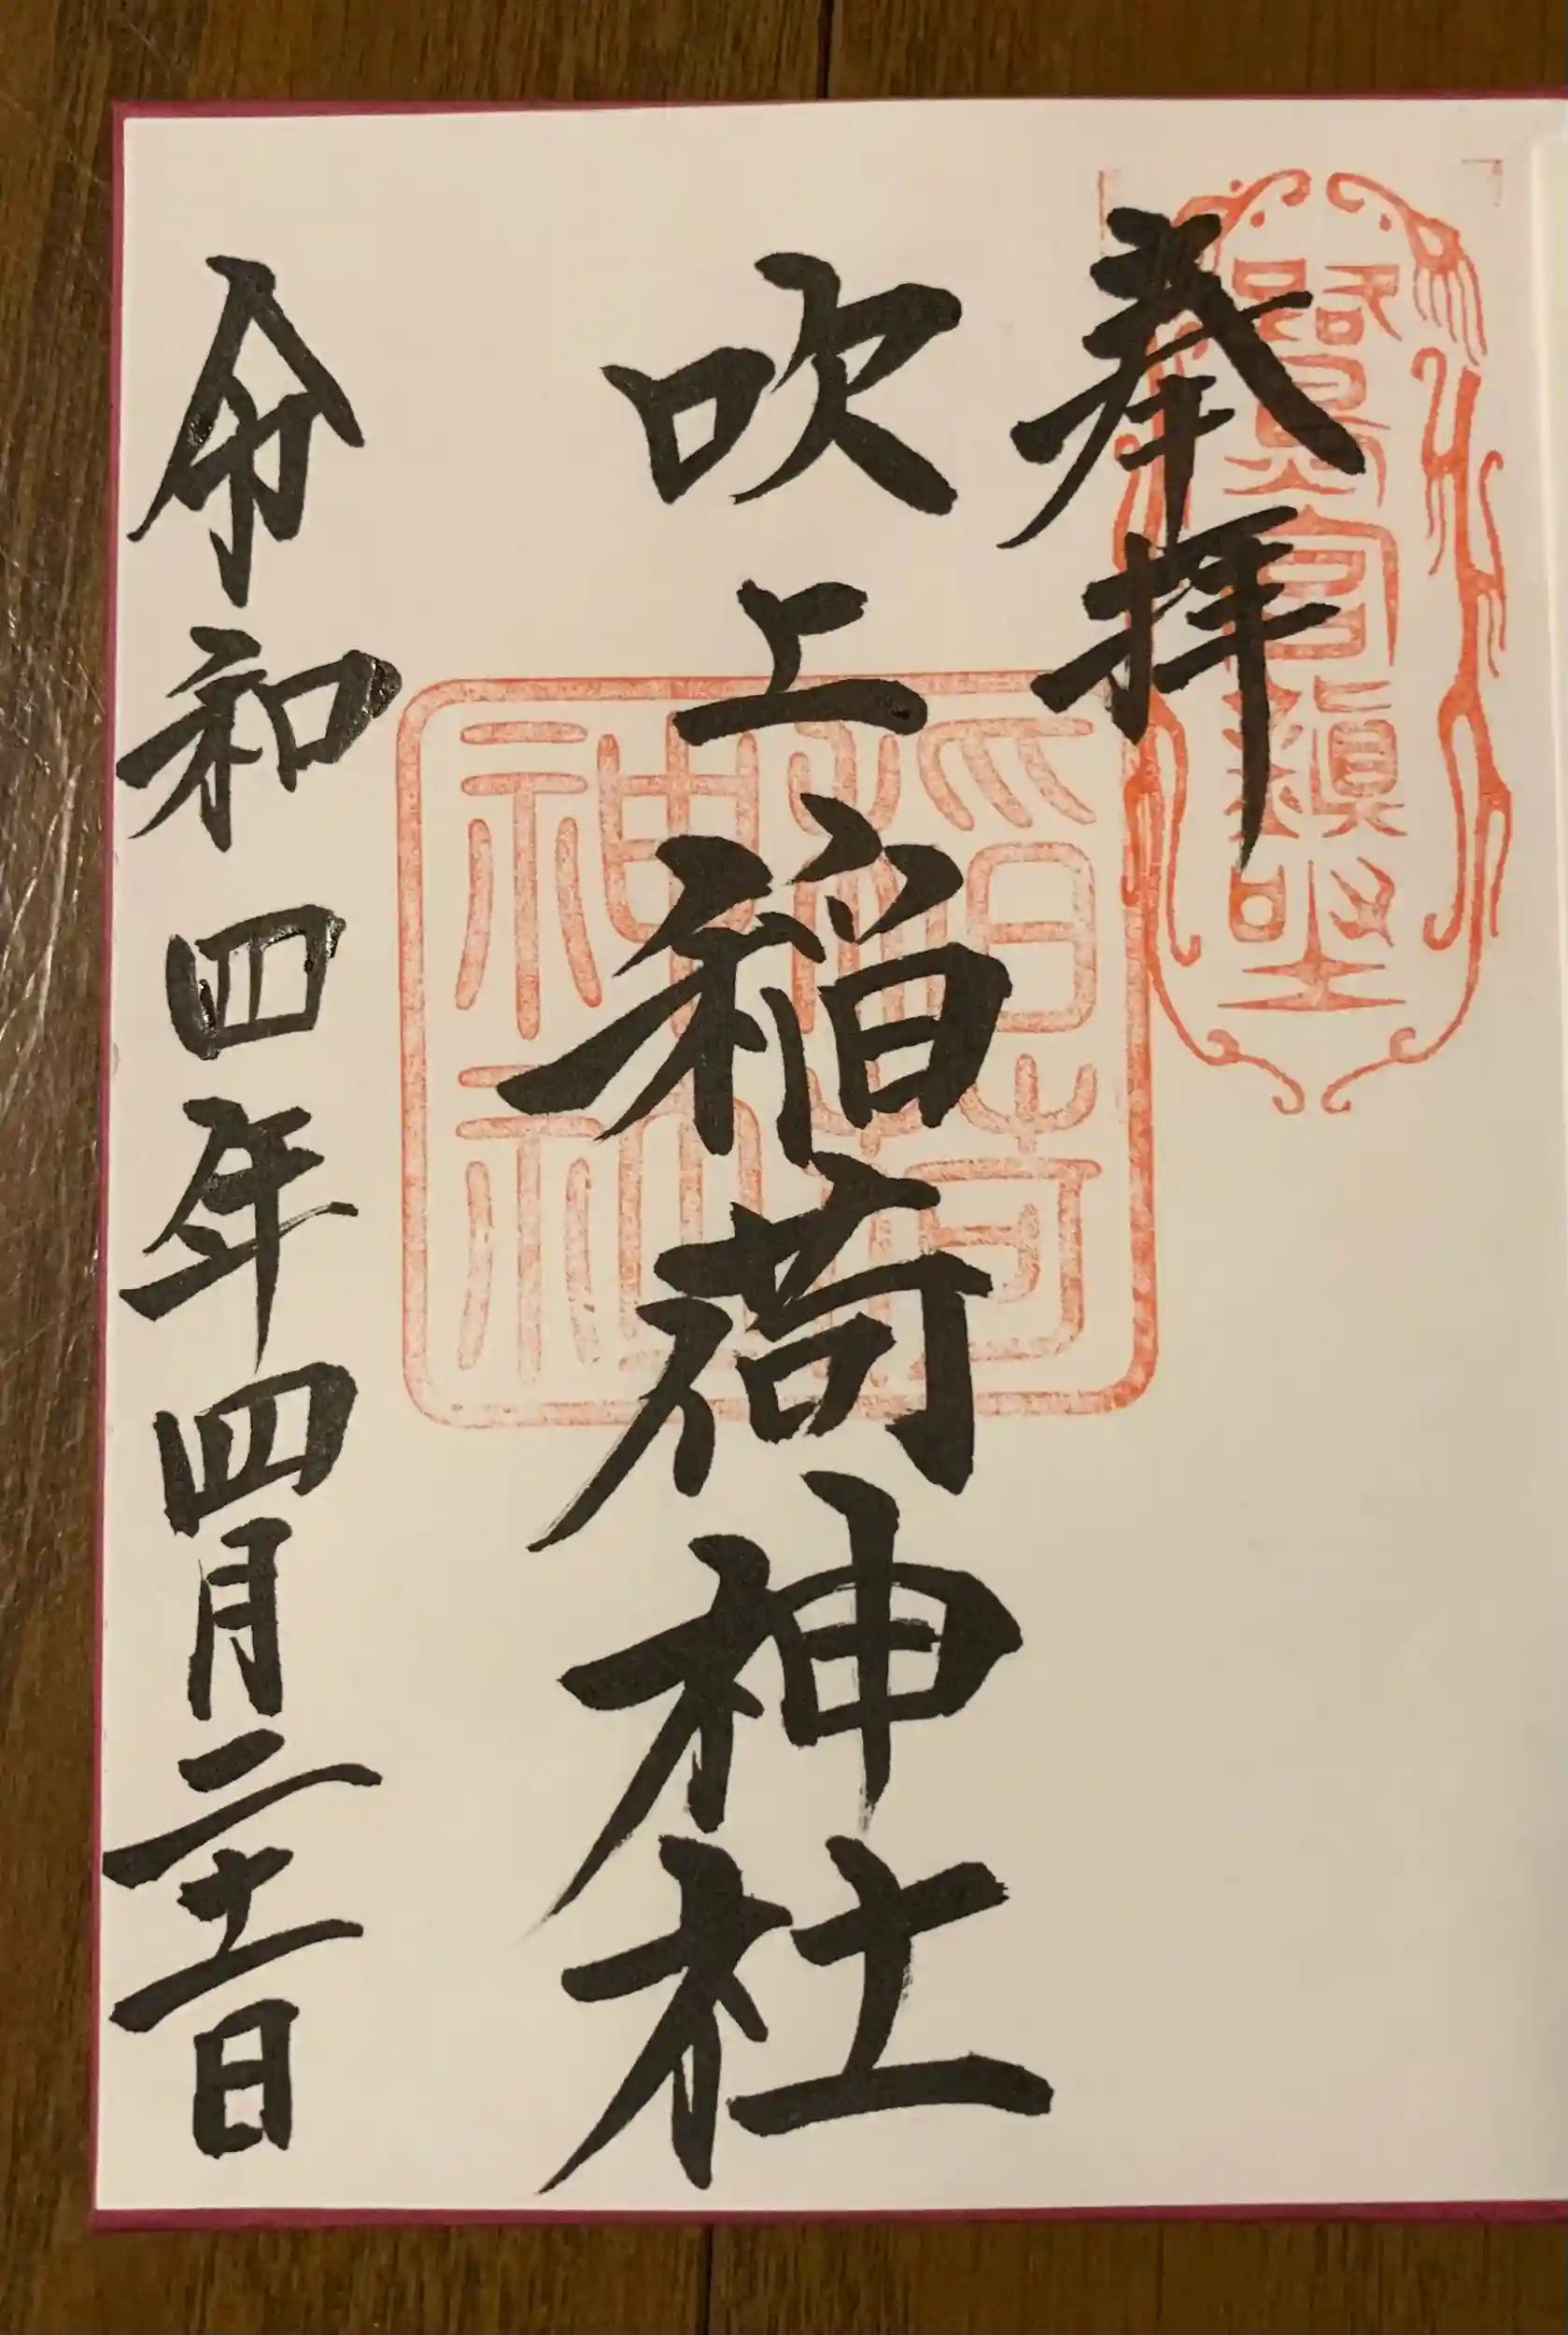 奉拝
鷺宮鎮坐
吹上稲荷神社
稲荷
神社
令和四年四月二十一日